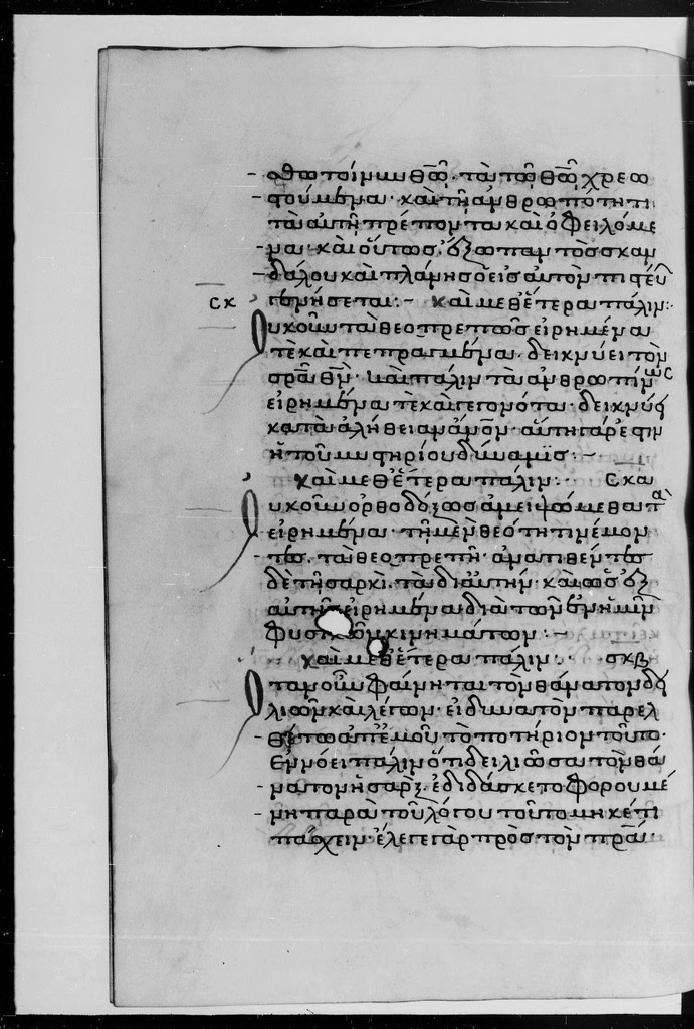 αθω τοίνυν θ̅ω̅· τὰ τῶ θ̅ω̅ χρεω
στούμενα· καὶ τῆ ἀνθρωπότητι
τὰ αὐτῆ πρέποντα καὶ ὀφειλόμε
να· καὶ οὕτως ἔξω παντὸς σκαν
δάλου καὶ πλάνης ὁ εἰς αὐτὸν πιστεύ
γενήσεται:– καὶ μεθ' ἕτερα πάλιν:
σκ
Οὐκοῦν τὰ θεοπρεπῶς εἰρημένα
τὲ καὶ πεπραγμένα. δεικνύει τὸν
σ̅ρ̅α̅ θ̅ν̅· καὶ πάλιν τὰ ἀνθρωπίνως
εἰρημένα τὲ καὶ γεγονότα· δεικνύει
κατὰ ἀλήθειαν ἄνον· αὕτη γάρ ἐστιν
ἡ τοῦ μυστηρίου δύναμις:–
καὶ μεθ' ἕτερα πάλιν: σκα
Οὐκοῦν ὀρθοδόξως ἀμειψόμεθα τὰ
εἰρημένα· τῆ μὲν θεότητι νέμον
τες. τὰ θεοπρεπῆ· ἀνατιθέντες
δὲ τῆ σαρκὶ. τὰ δι' αὐτὴν καὶ ὡς ἐξ
αὐτῆς εἰρημένα διὰ τῶν ἐν ἡμῖν
φυσικῶν κινημάτων:–
καὶ μεθ' ἕτερα πάλιν: σκβ
Ὅταν οὖν φαίνηται τὸν θάνατον δει
λιῶν καὶ λέγων· εἰ δυνατὸν παρελ
θέτω ἀπ' ἐμοῦ τὸ ποτήριον τοῦτο·
ἐννόει πάλιν ὅτι δειλιῶσα τὸν θά
νατον ἡ σὰρξ. ἐδιδάσκετο φορουμέ
νη παρὰ τοῦ λόγου τοῦτο μηκέτι
πάσχειν· ἔλεγε γὰρ πρὸς τὸν π̅ρ̅α̅·